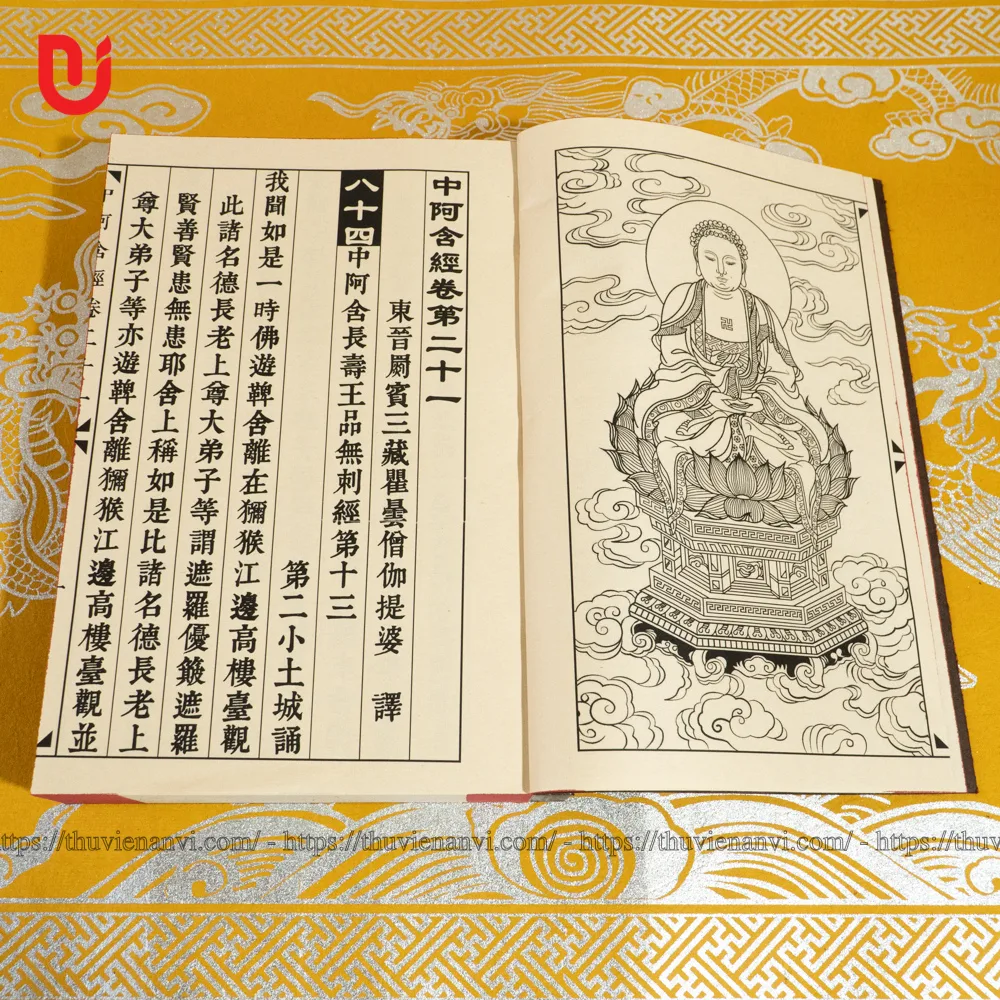 中阿含經卷第二十一
東晉罽賓三藏瞿曇僧伽提婆 譯
八十四中阿含長壽王品無刺經第十三
第二小土城誦
我聞如是一時佛遊鞞舍離在獼猴江邊高樓臺觀
此諸名德長老上尊大弟子等謂遮羅優簸遮羅
賢善賢患無患耶舍上稱如是比諸名德長老上
尊大弟子等亦遊鞞舍離獼猴江邊高樓臺觀並
中阿含經卷二十一
一
https://thuvienanvi.com/ - https://thuvienanvi.com/ - https://thuvienanvi.com/ - https://thuvienanvi.com/